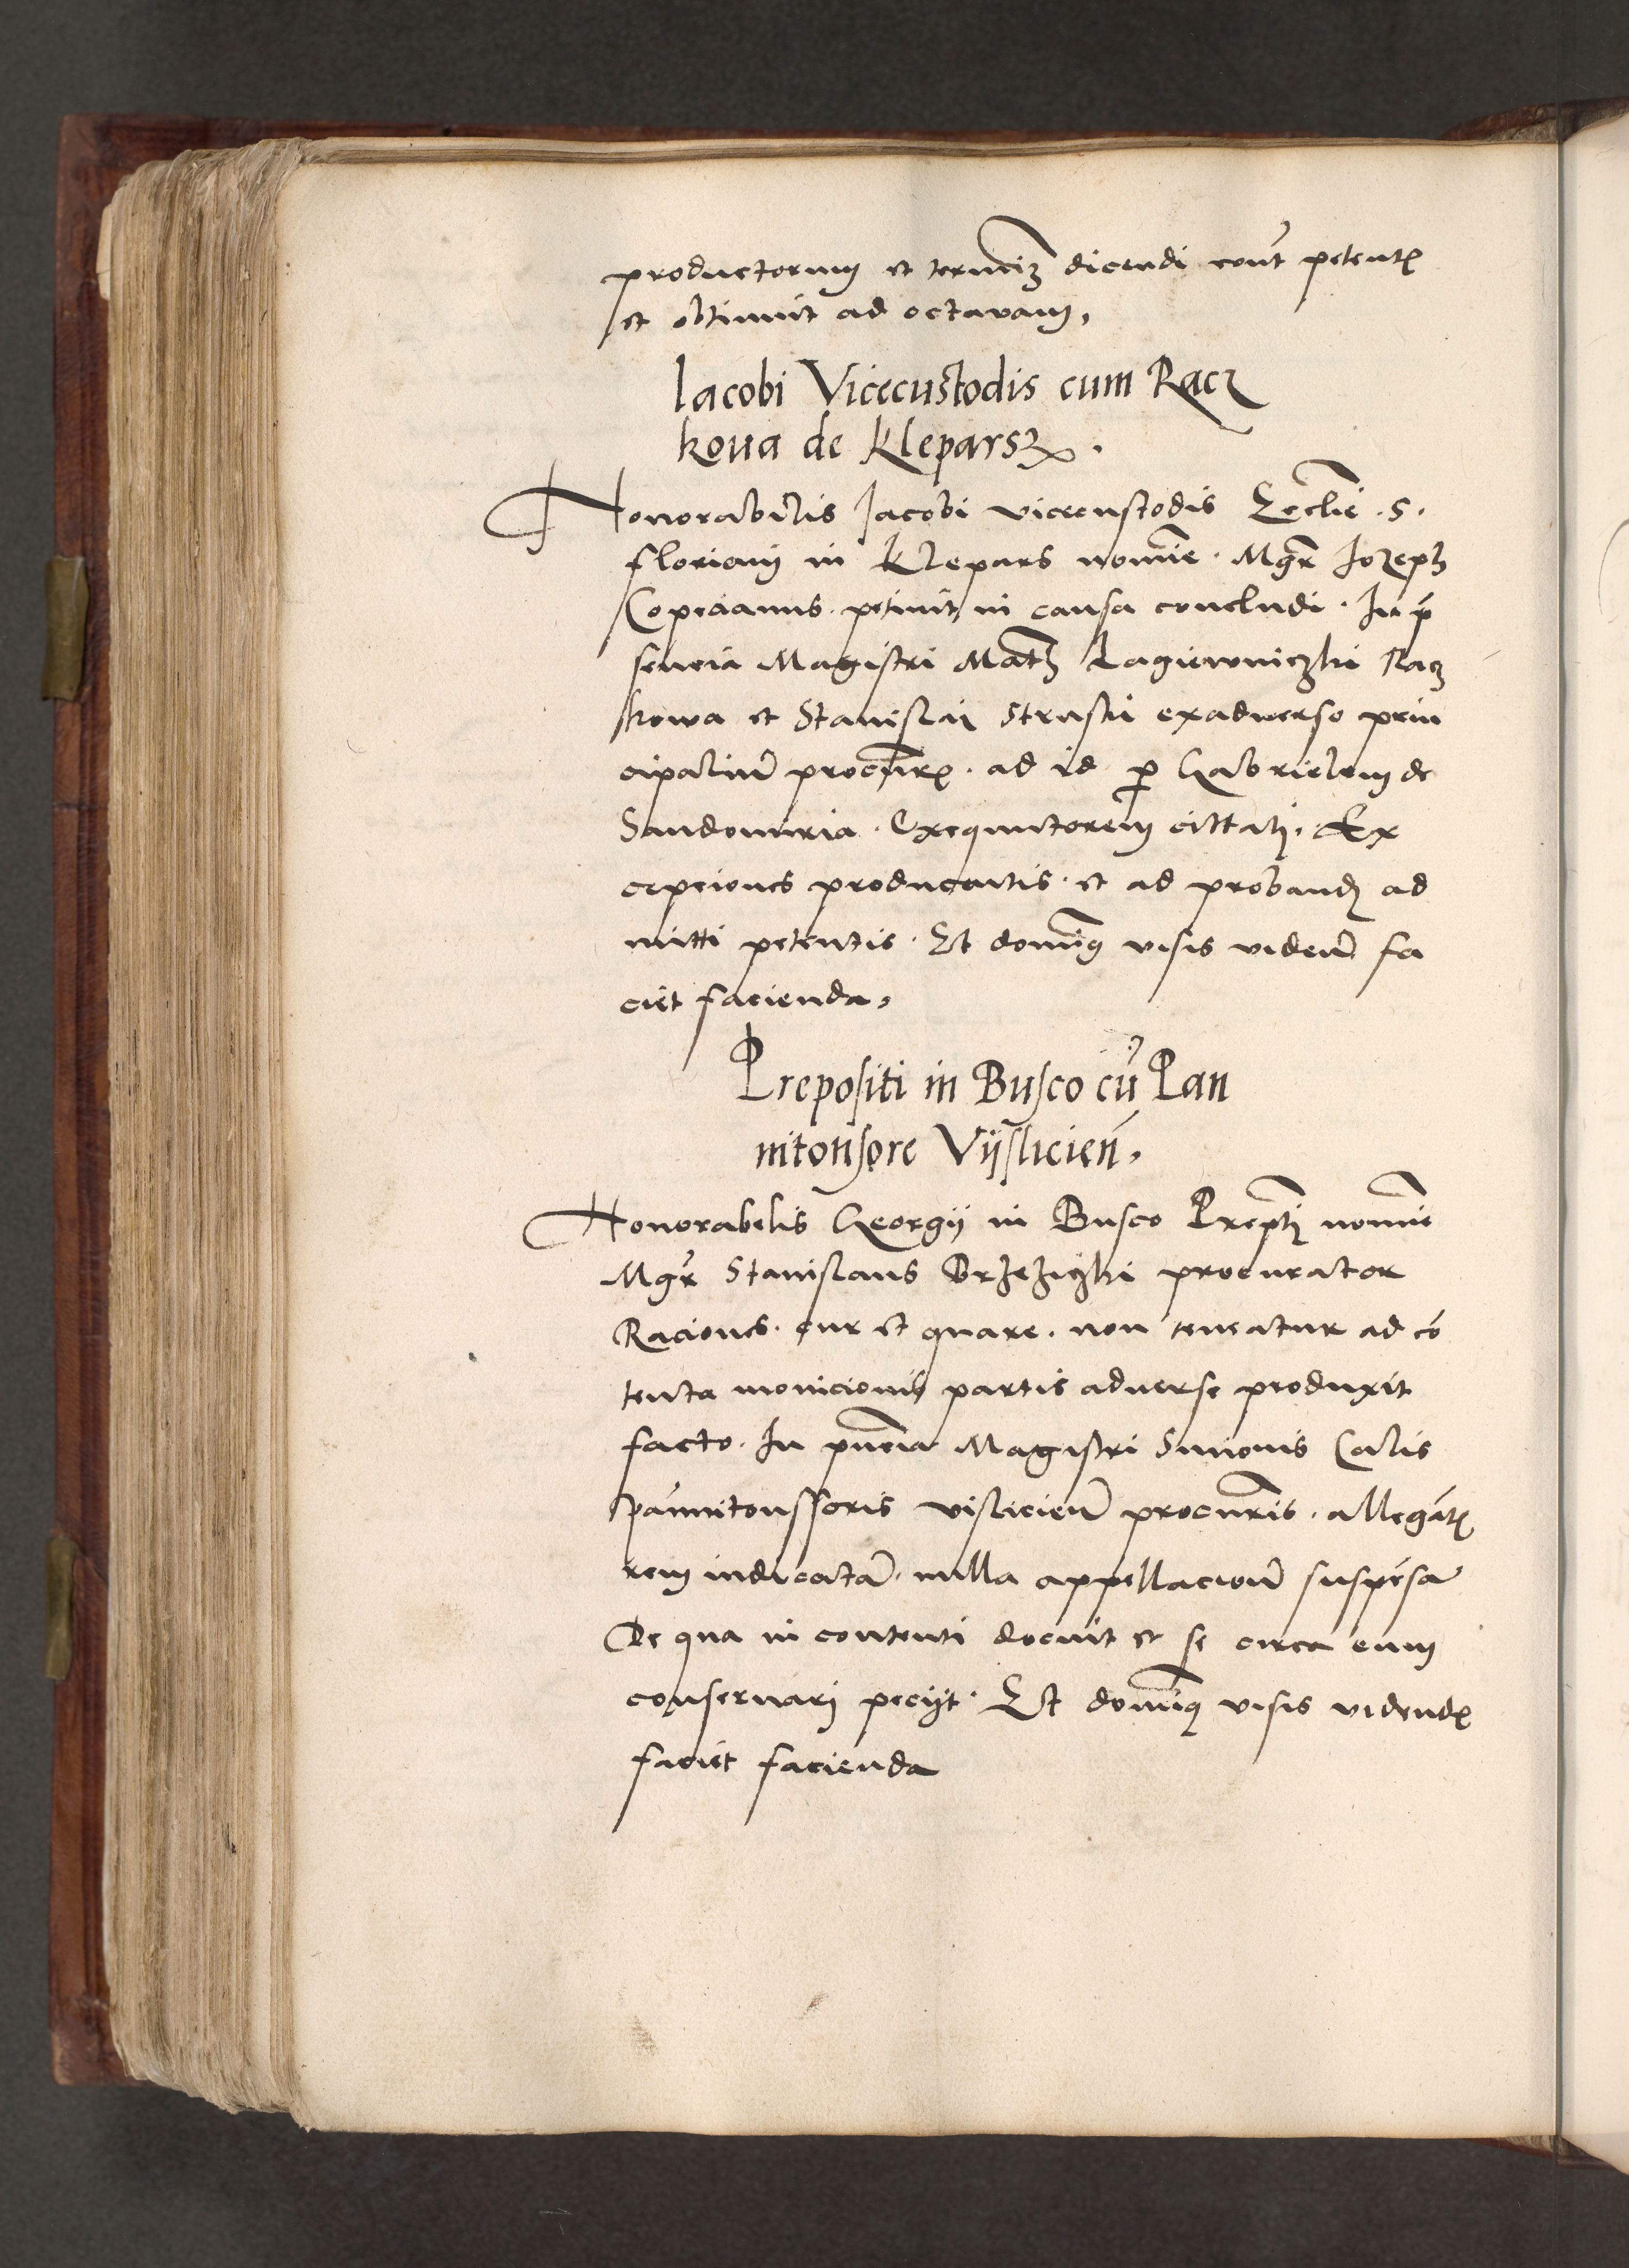 productorum et terminū dicendi cont̄ petentꝭ
et obtinuit ad octavam,
Iacobi Vicecustodis cum Racz
koua de Kleparsz.
Honorabilis Jacobi vicecustodis Ecclīe .S.
floriani in Klepars nomīe . Mgr̄ Jozeph
Copecianus . petivit in causa concludi . In p̄
sencia Magistri Math Lagiewniczki Racz
kowa et Stanislai Struski exadverso prin
cipaliū procur̄ . ad id ꝑ Gabrielem de
Sandomiria . Exequutorem cittatj . Ex
cepciones producentis . et ad probandū ad
mitti petentis . Et dominꝰ visis videnð fa
ciet facienda,
Prepositi in Busco cū Pan
nitonsore Vijslicień,
Honorabilis Georgij in Busco Prepti nomīe
Mgr̄ Stanislaus Brzeziczki procurator
Raciones . cur et quare . non teneatur ad cō
tenta monicionis partis adverse produxit
facto . In pn̄cia Magistri Simonis Calis
pannitonssoris vislicień procur̄is . allegan̄tꝭ
rem iudicatā . nulla appellacionē suspēsā
De qua in contenti docuit et se circa eum
conservari peciit . Et dominꝰ visis videndꝭ
faciet facienda